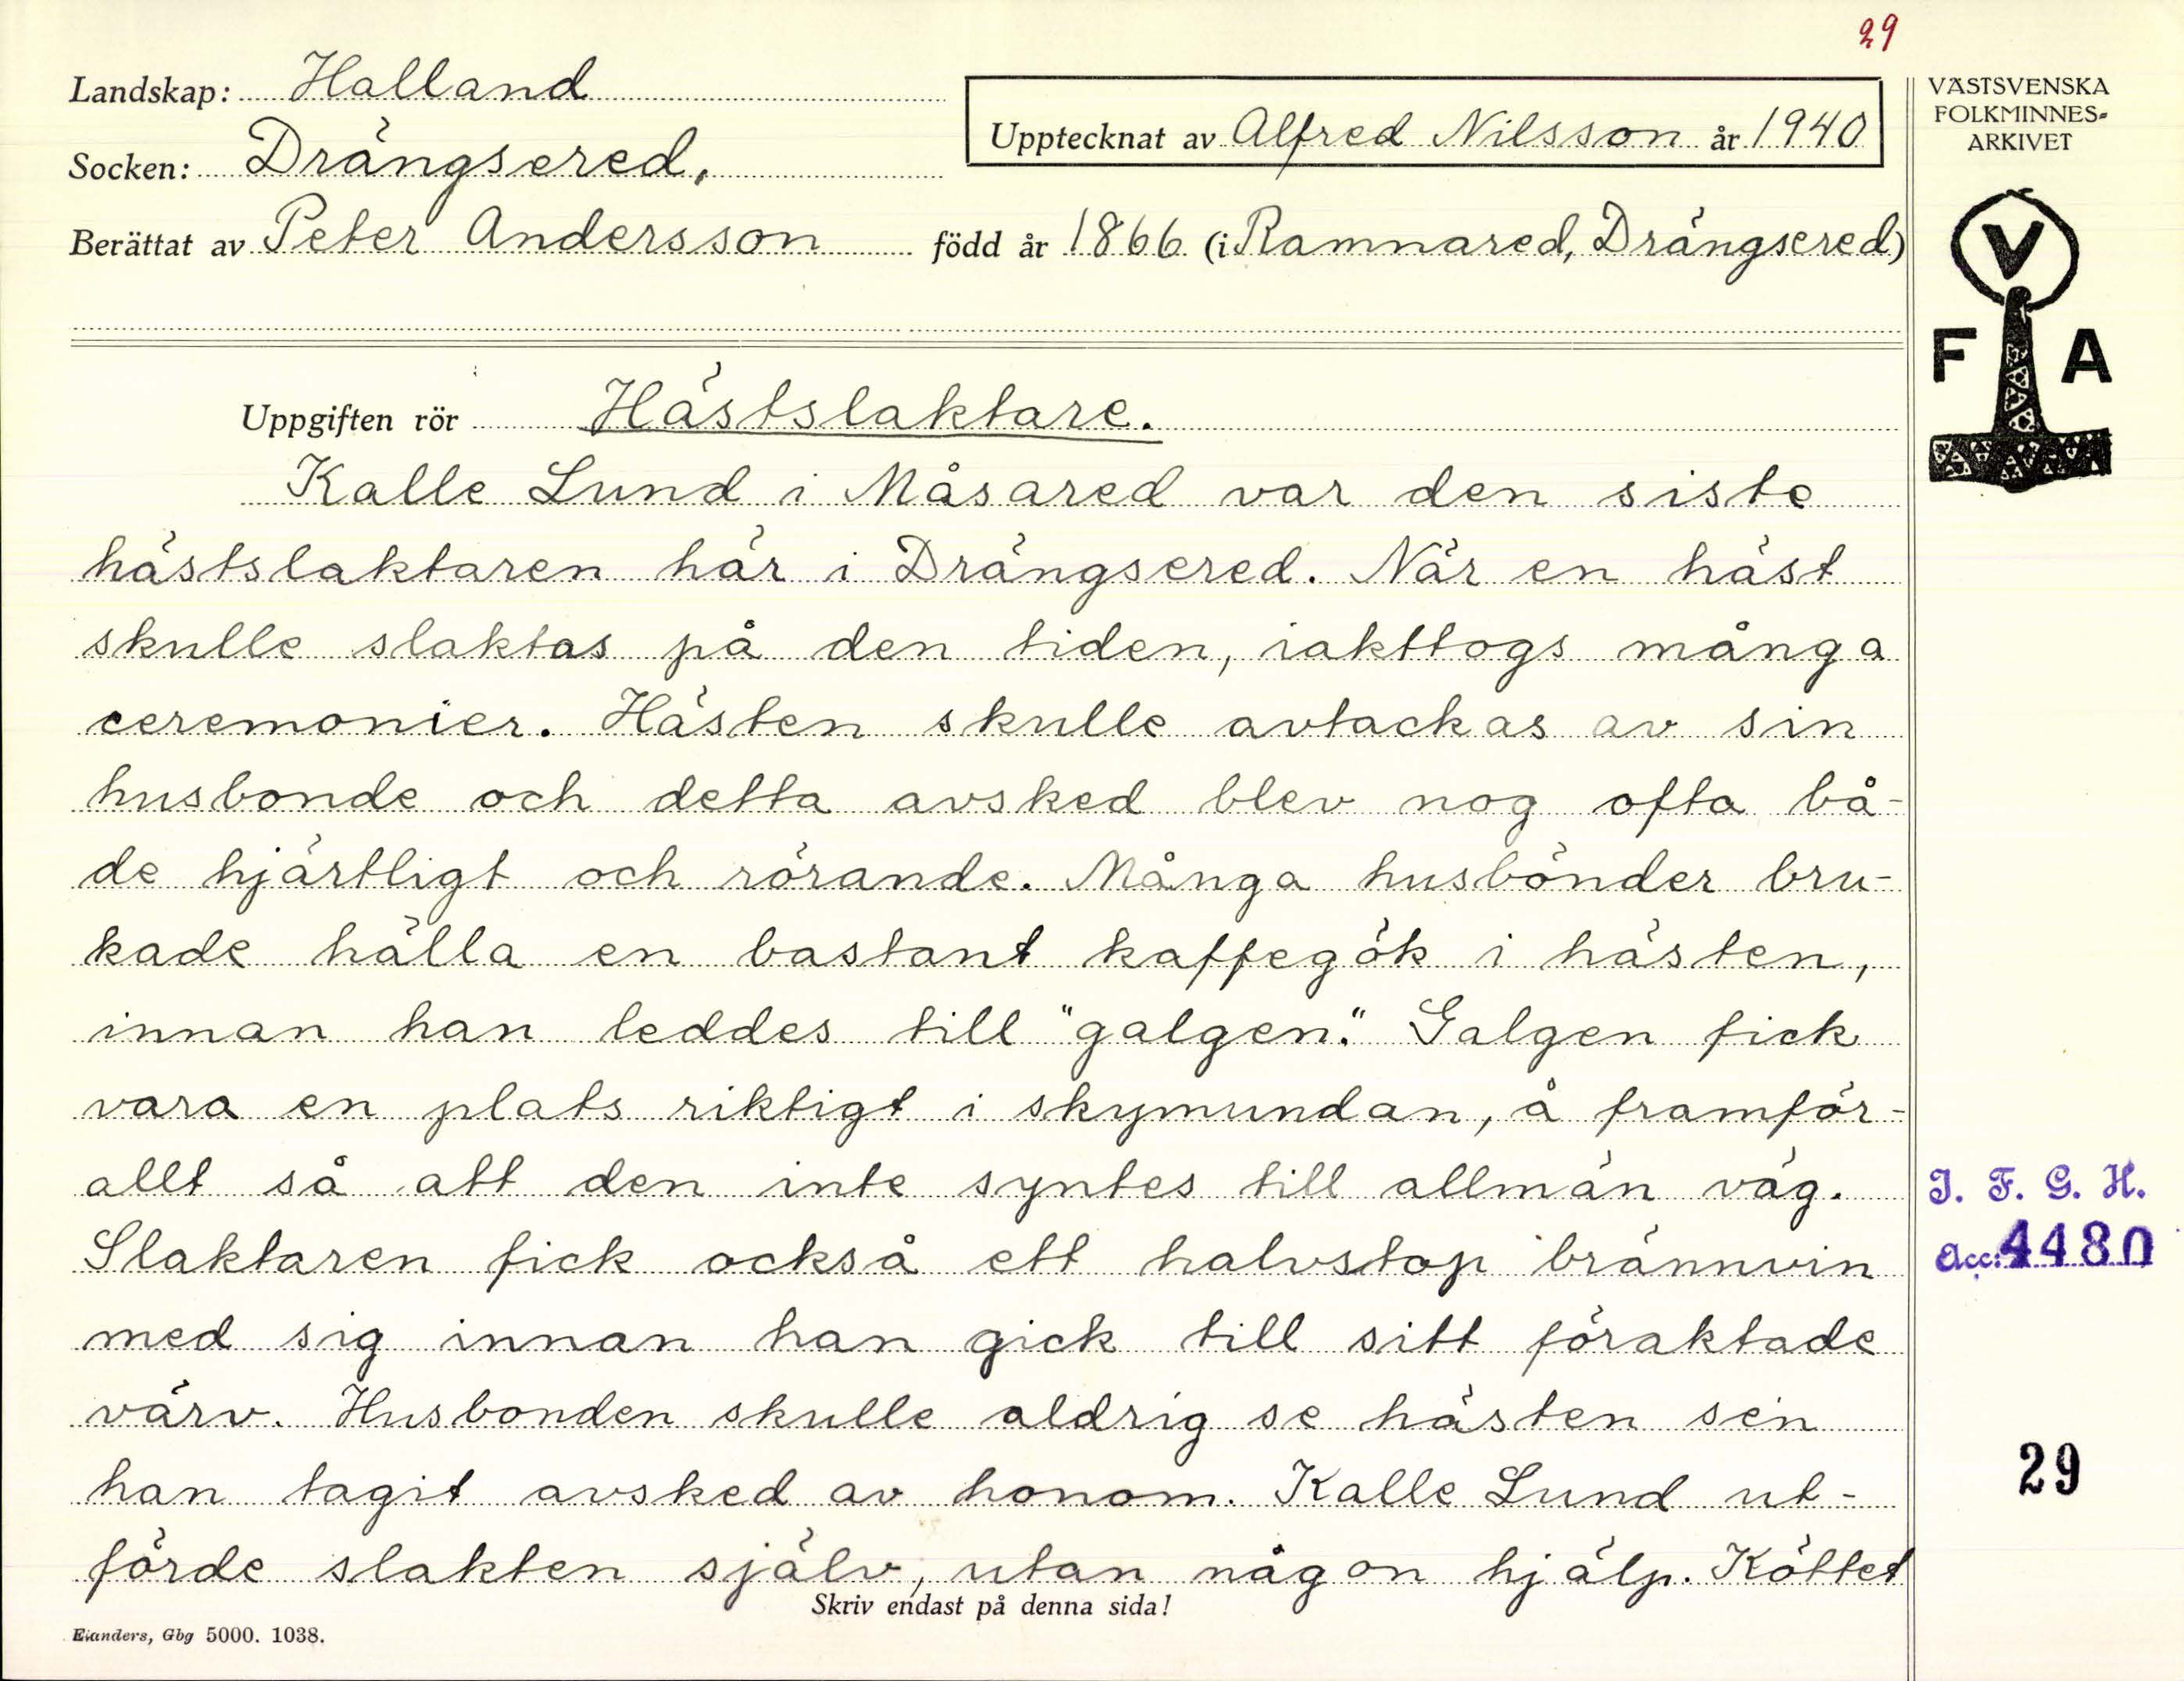 29
Landskap: Halland
Socken: Drängsered.
Upptecknat av Alfred Nilsson år 1940
Berättat av Peter Andersson född år 1866 (i Ramnared, Drängsered)
VÄSTSVENSKA
FOLKMINNES=
ARKIVET
V
F A
Uppgiften rör Hästslaktare.
Kalle Lund i Måsared var den siste
hästslaktaren här i Drängsered. När en häst
skulle slaktas på den tiden, iakttogs många
ceremonier. Hästen skulle avtackas av sin
husbonde och detta avsked blev nog ofta bå-
de hjärtligt och rörande. Många husbönder bru-
kade hälla en bastant kaffegök i hästen,
innan han leddes till "galgen." Galgen fick
vara en plats riktigt i skymundan, å framför-
allt så att den inte syntes till allmän väg.
Slaktaren fick också ett halvstop brännvin
med sig innan han gick till sitt föraktade
värv. Husbonden skulle aldrig se hästen se'n
han tagit avsked av honom. Kalle Lund ut-
förde slakten själv, utan någon hjälp. Köttet
I. F. G. H.
Acc: 4480
29
Skriv endast på denna sida!
Elanders, Gbg 5000. 1038.